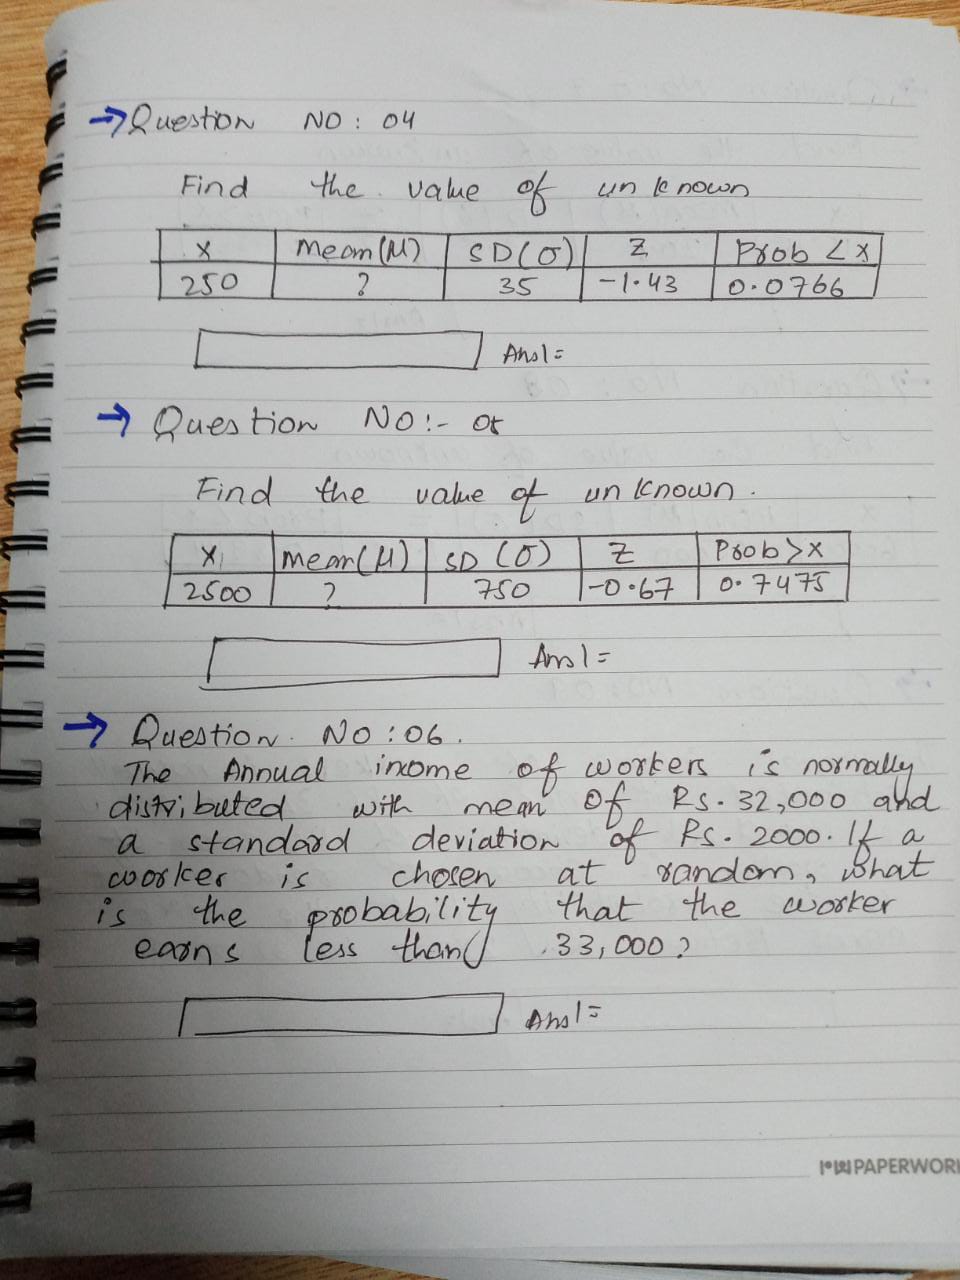 → Question NO : 04
Find the value of unknown
X Mean(μ) SD(σ) Z Prob < X
250 ? 35 -1.43 0.0766
Ans1=
→ Question NO:- 05
Find the value of unknown.
X Mean(μ) SD (σ) Z Prob > X
2500 ? 750 -0.67 0.7475
Ans1=
→ Question. NO : 06.
The Annual income of workers is normally
distributed with mean of Rs. 32,000 and
a standard deviation of Rs. 2000. If a
worker is chosen at random, what
is the probability that the worker
earns less than 33,000?
Ans1=
PAPERWORK